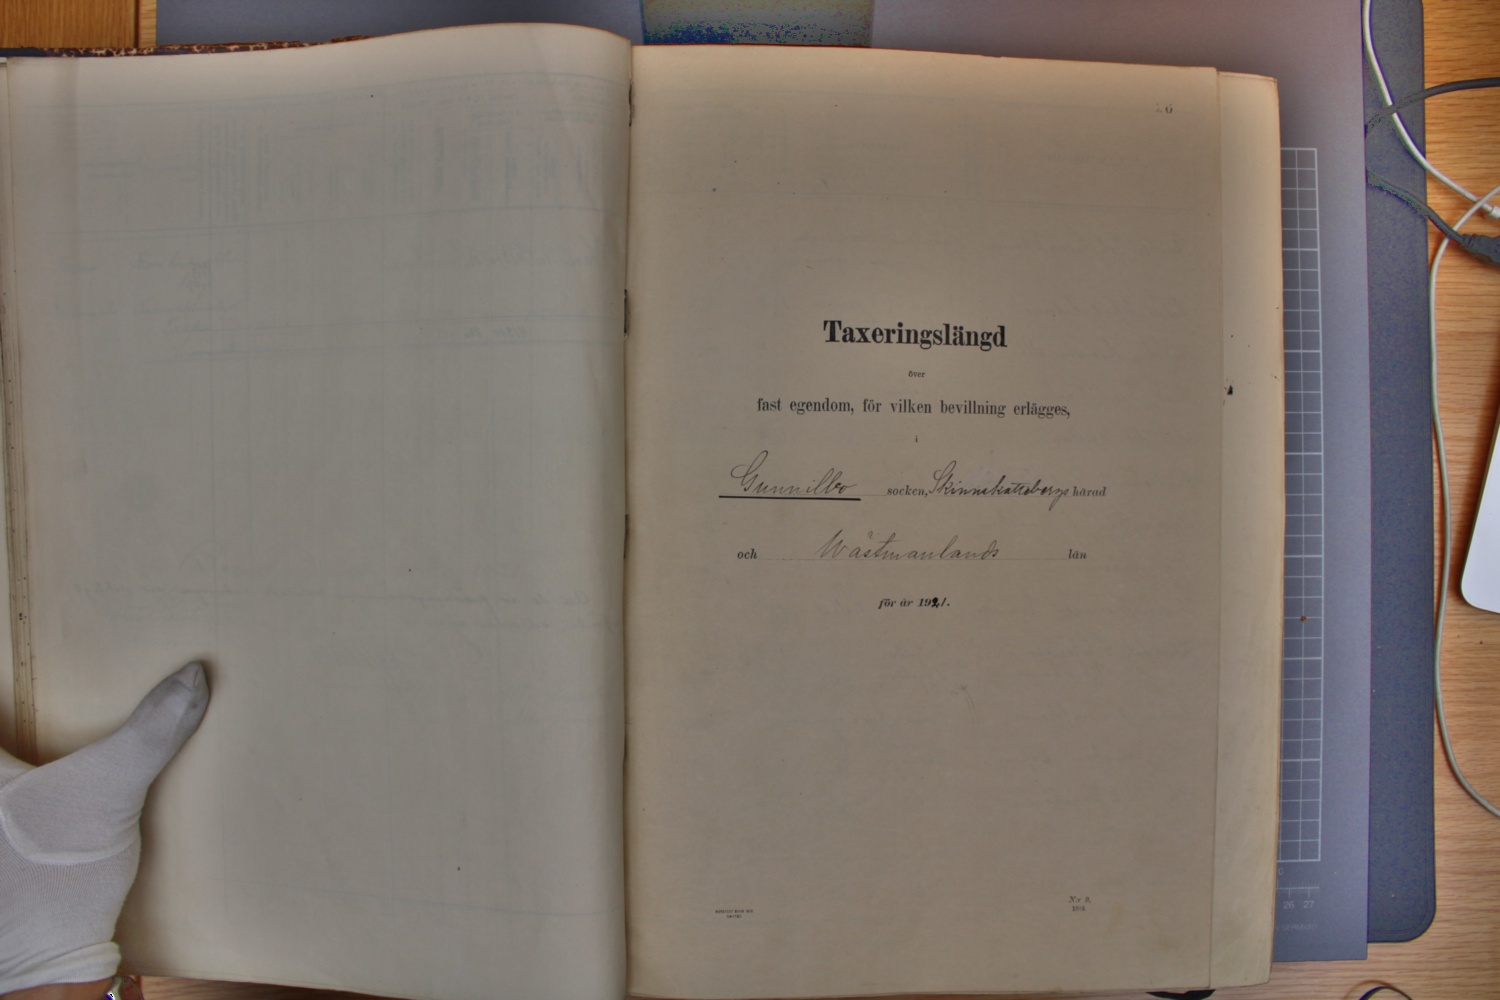 Taxeringslängd
över
fast egendom, för vilken bevillning erlägges,
i
Gunnilbo socken, Skinnskattebergs härad
och Wästmanlands län
för år 1921.
Nr 9.
26 27